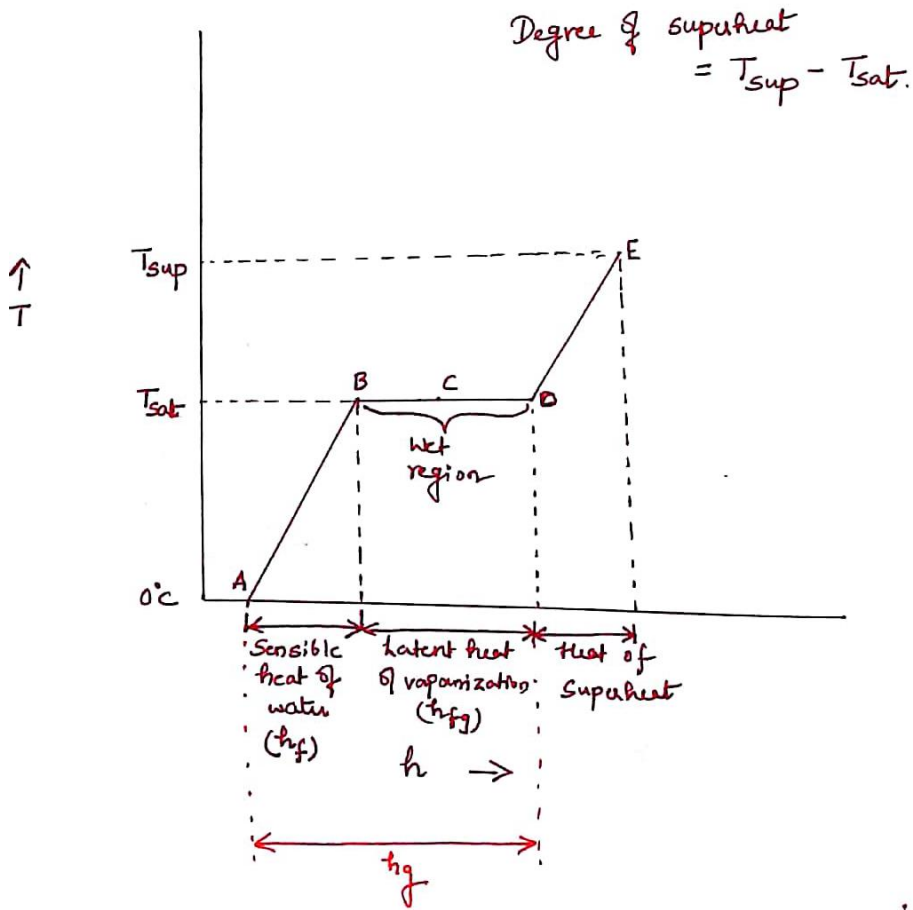 Degree of superheat
= Tsup - Tsat.
↑
T
Tsup
E
Tsat
B
C
D
Wet
region
A
0°C
Sensible
heat of
water
(hf)
Latent heat
of vaporization
(hfg)
Heat of
Superheat
h →
hg